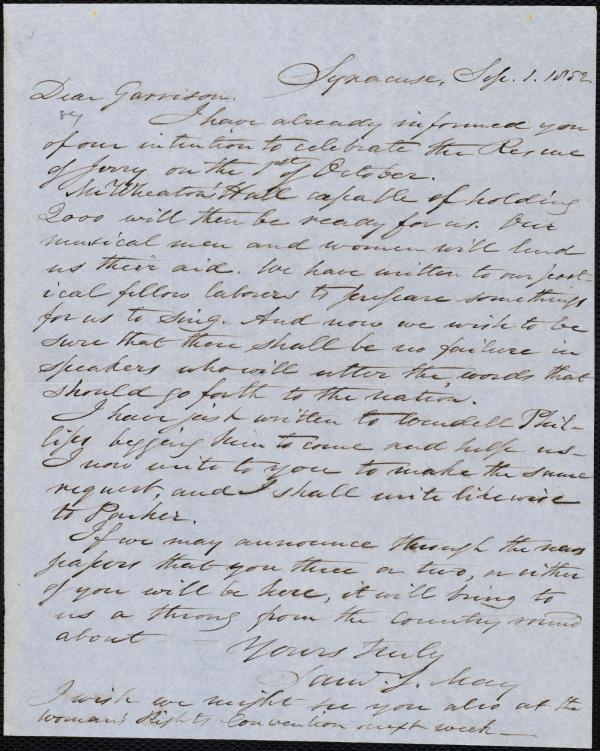 Syracuse, Sep. 1. 1852
Dear Garrison.
I have already informed you
of our intention to celebrate the Rescue
of Jerry on the 1st of October.
Mr Wheaton's Hall capable of holding
2000 will then be ready for us. Our
musical men and women will lend
us their aid. We have written to our poet-
ical fellow laborers to prepare somethings
for us to sing. And now we wish to be
sure that there shall be no failure in
speakers who will utter the words that
should go forth to the nation.
I have just written to Wendell Phil-
lips begging him to come and help us–
I now write to you to make the same
request, and I shall write likewise
to Parker.
If we may announce through the news
papers that you three or two, or either
of you will be here, it will bring to
us a throng from the Country round
about – Yours truly
Saml. J. May
I wish we might see you also at the
Woman's Rights Convention next week–